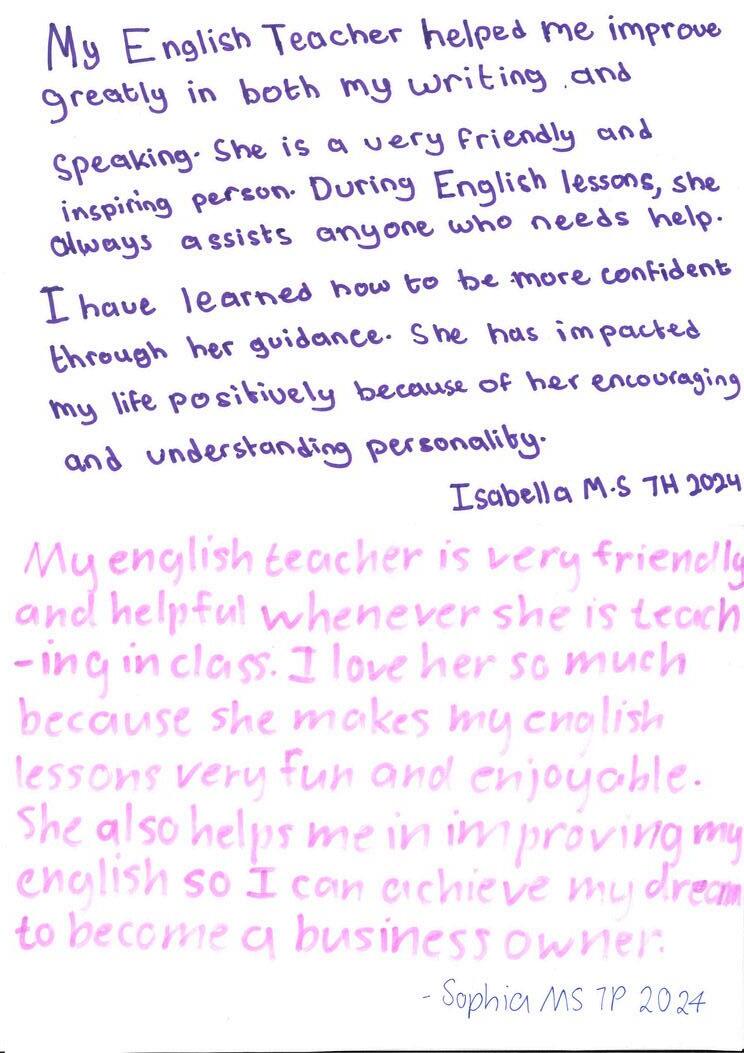 My English Teacher helped me improve
greatly in both my writing and
speaking. She is a very friendly and
inspiring person. During English lessons, she
always assists anyone who needs help.
I have learned how to be more confident
through her guidance. She has impacted
my life positively because of her encouraging
and understanding personality.
Isabella M.S 7H 2024
My english teacher is very friendly
and helpful whenever she is teach
-ing in class. I love her so much
because she makes my english
lessons very fun and enjoyable.
She also helps me in improving my
english so I can achieve my dream
to become a business owner.
- Sophia MS 7P 2024